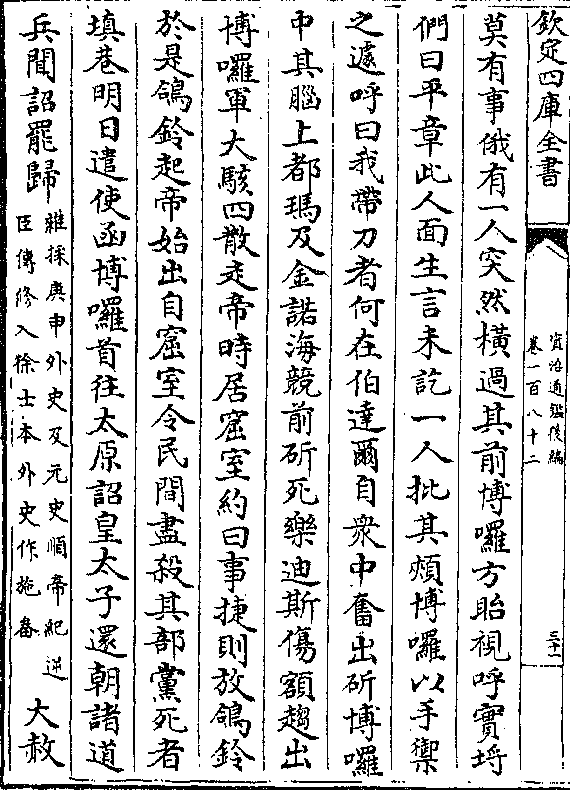 欽定四庫全書
資治通鑑後編
卷一百八十二
三十一
莫有事俄有一人突然橫過其前博囉方眙視呼實埒
們曰平章此人面生言未訖一人批其頰博囉以手禦
之遽呼曰我帶刀者何在伯達爾自衆中奮出斫博囉
中其腦上都瑪及金諾海競前斫死樂迪斯傷額趨出
博囉軍大駭四散走帝時居窟室約曰事捷則放鴿鈴
於是鴿鈴起帝始出自窟室令民間盡殺其部黨死者
填巷明日遣使函博囉首往太原詔皇太子還朝諸道
兵聞詔罷歸
雜採庚申外史及元史順帝紀逆
臣傳修入徐士本外史作施畚
大赦